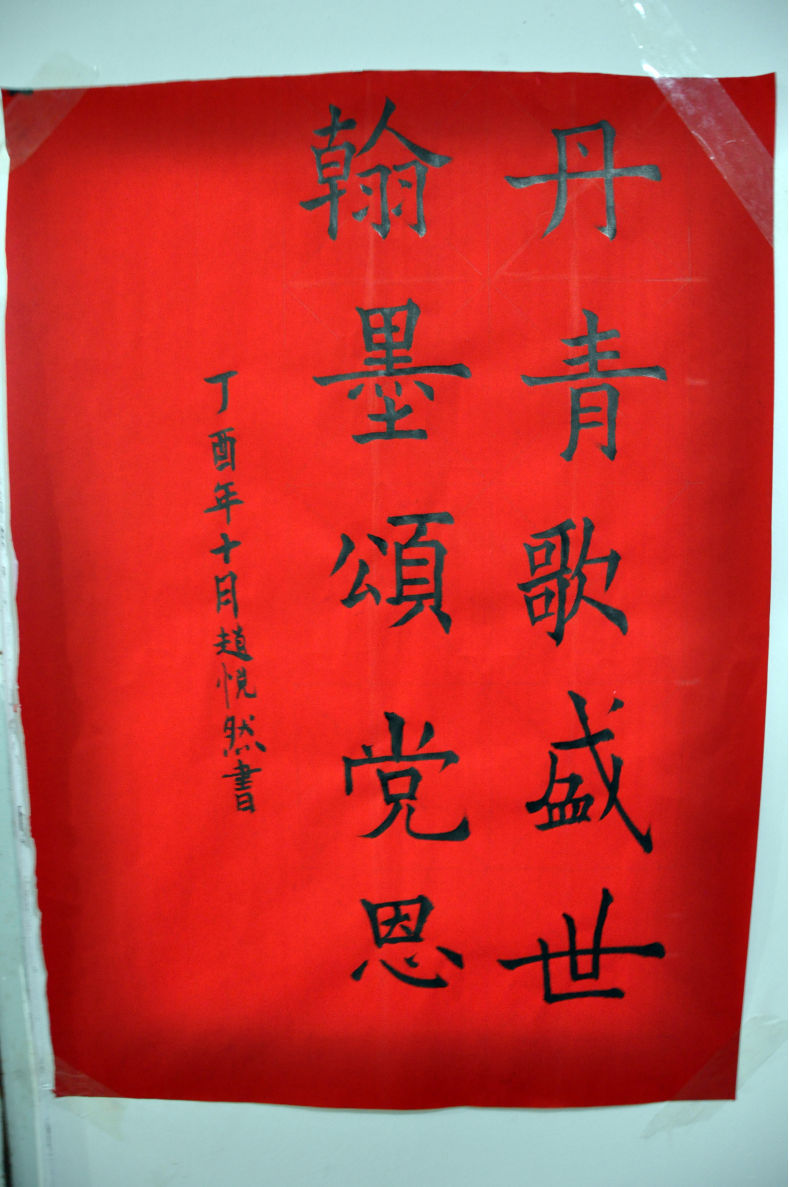 丹青歌盛世
翰墨頌党恩
丁酉年十月趙悦然書